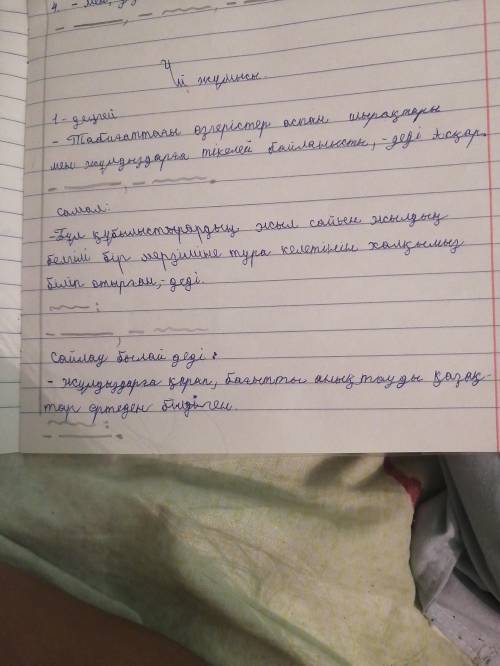 4. - мен, 
Үй жұмысы.
1- деңгей
- Табиғаттағы өзгерістер аспан шырақтары
мен жұлдыздарға тікелей байланысты, - деді Асқар.
- , - .
Самал:
-Бұл құбылыстырардың жыл сайын жылдың
белгілі бір мерзіліне тура келетінін халқымыз
біліп отырған,- деді.
:
- , -
Сайлау былай деді:
- Жұлдыздарға қарап, бағытты анықтауды қазақ-
тар ертеден білген.
:
- .